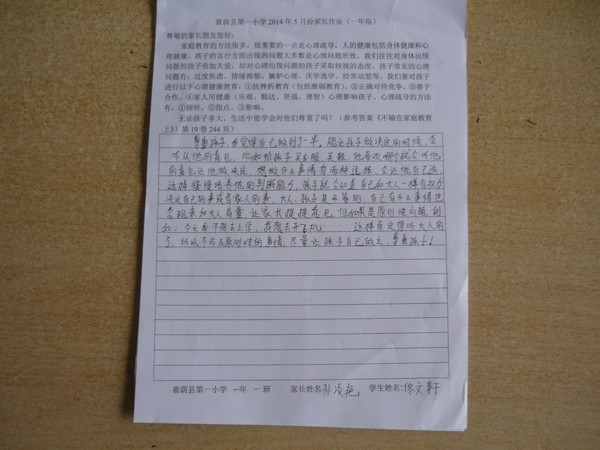 蓟县第一小学2014年5月份家长作业（一年组）
尊敬的家长朋友您好：
家庭教育的方法很多，很重要的一点是心理疏导。人的健康包括身体健康和心
理健康。孩子的言行方面出现的问题大多数是心理问题所致。我们往往对身体出现
问题的孩子倍加关爱，却对心理出现问题的孩子采取歧视的态度。孩子常见的心理
问题有：过度焦虑、情绪抑郁、嫉妒心理、厌学逃学、经常动怒等。我们要对孩子
进行以下心理健康教育：①抗挫折教育（包括磨砺教育）。②正确对待竞争。③善于
合作。④家人用健康（乐观、豁达、坚强、理智）心理影响孩子。心理疏导的方法
有：①倾听。②指点。③影响。
无论孩子多大，生活中您学会对他们尊重了吗？（参考答案《不输在家庭教育
上》第19卷244页）
尊重孩子，我觉得自己做到了一半，能让孩子做决定的时候会
听从他的意见，比如给孩子买衣服、买鞋他喜欢哪个就会听他
的意见让他做决定，想做什么事情有两种选择，会让他自己选，
这样慢慢培养他的判断能力，孩子就会知道自己和大人一样有权力
决定自己的事或者家人的事，大人、孩子是平等的，自己有什么事情也
会跟家和大人商量，让家长提提意见，但如果是原则性问题，例
如：今天我不想去上学，我想去手机……这样肯定得听大人的
了，所以不涉及原则性的事情，尽量让孩子自己做主，尊重孩子！
第一小学 一年 一 班 家长姓名 孙凌艳 学生姓名：佟文轩